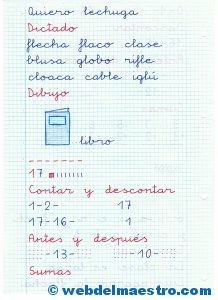 Quiero lechuga
Dictado
flecha flaco clase
blusa globo rifle
cloaca cable iglú
Dibujo
libro
17
Contar y descontar
1-2- 17
17-16- 1
Antes y después
-13- -10-
Sumas
© webdelmaestro.com